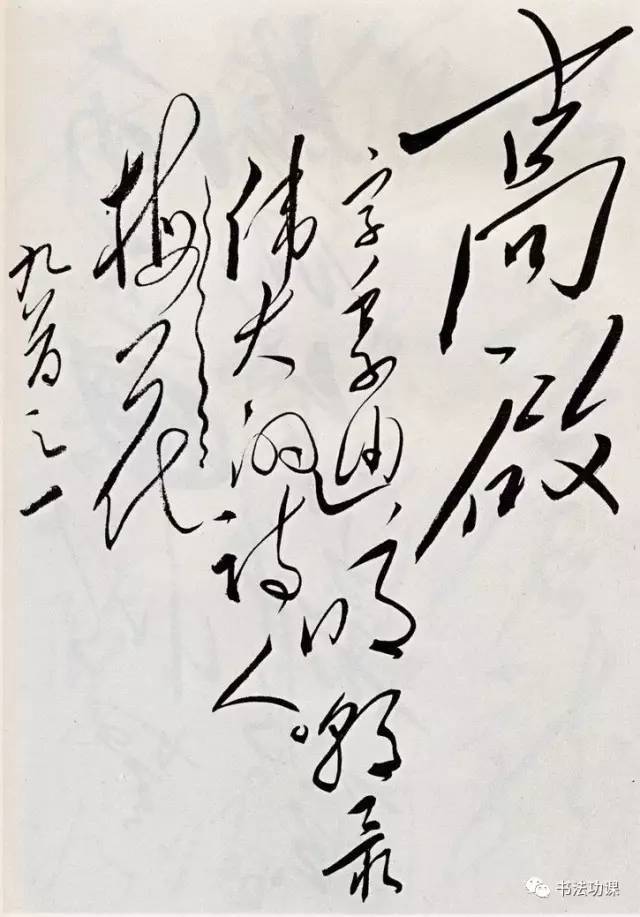 高启
字季迪，明朝最
伟大的诗人。
梅花
九首之一
书法功课